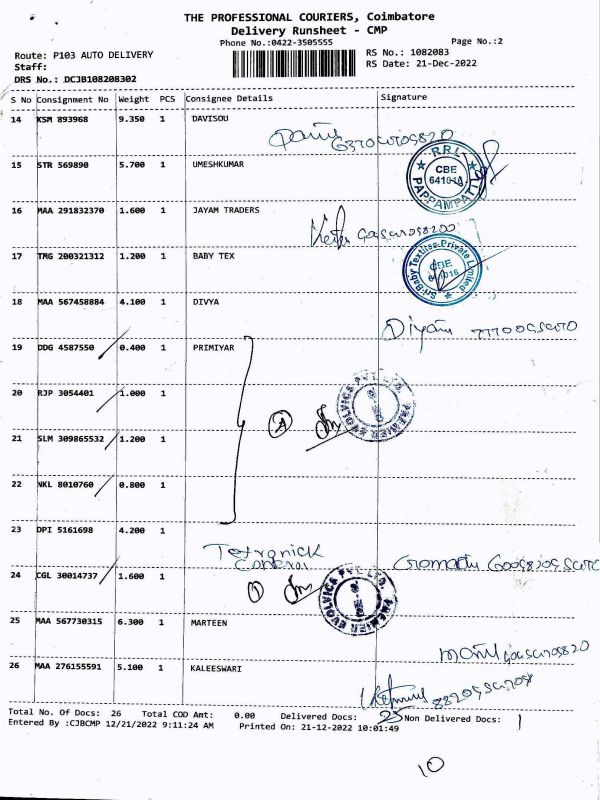 THE PROFESSIONAL COURIERS, Coimbatore
Delivery Runsheet - CMP
Phone No.:0422-3505555 Page No.:2
Route: P103 AUTO DELIVERY RS No.: 1082083
Staff: RS Date: 21-Dec-2022
DRS No.: DCJB108208302
S No Consignment No Weight PCS Consignee Details Signature
14 KSM 893968 9.350 1 DAVISOU
15 STR 569890 5.700 1 UMESHKUMAR
R.R.L
CBE
PAPPAMPATTI
16 MAA 291832370 1.600 1 JAYAM TRADERS
17 TMG 200321312 1.200 1 BABY TEX
Sri Baby Textiles Private Limited
CBE
18 MAA 567458884 4.100 1 DIVYA
19 DDG 4587550 0.400 1 PRIMIYAR
20 RJP 3054401 1.000 1
PREMIER EVOLVICS PVT. LTD.
21 SLM 309865532 1.200 1
22 NKL 8010760 0.800 1
23 DPI 5161698 4.200 1
24 CGL 30014737 1.600 1
PREMIER EVOLVICS PVT. LTD.
25 MAA 567730315 6.300 1 MARTEEN
26 MAA 276155591 5.100 1 KALEESWARI
Total No. Of Docs: 26 Total COD Amt: 0.00 Delivered Docs: 25 Non Delivered Docs: 1
Entered By :CJBCMP 12/21/2022 9:11:24 AM Printed On: 21-12-2022 10:01:49
10